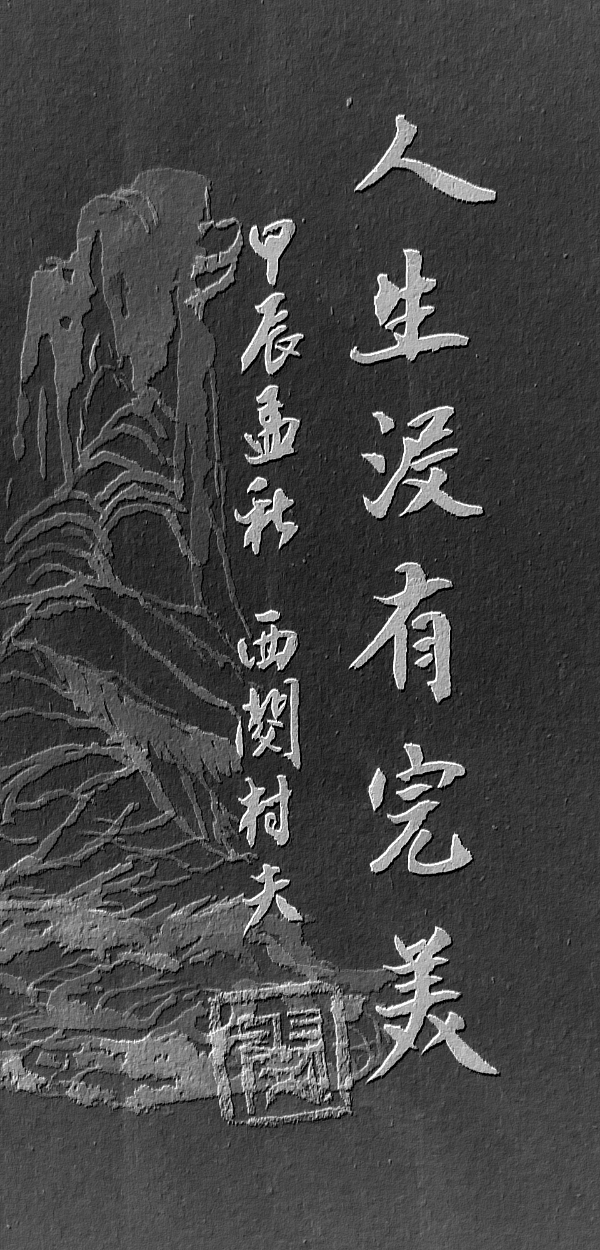 人生没有完美
甲辰孟秋 西関村夫